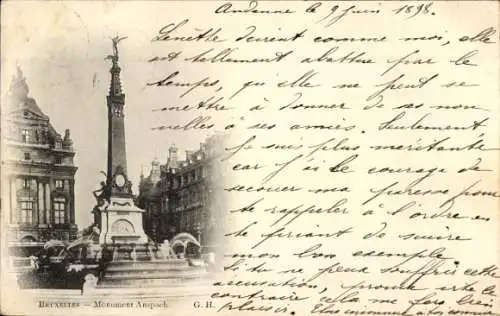 Andenne le 9 Juin 1898.
L'être devient comme moi, elle
est tellement abattue par le
temps, qu'elle ne peut se
mettre à donner de ses nou-
velles à ses amies. Seulement
je suis plus méritante
car j'ai le courage de
secouer ma paresse pour
te rappeler à l'ordre en
te priant de suivre
mon bon exemple
Si tu peux souffrir cette
accusation, prouve moi le
contraire cela me fera bien
plaisir.
BRUXELLES – Monument Anspach. G. H.